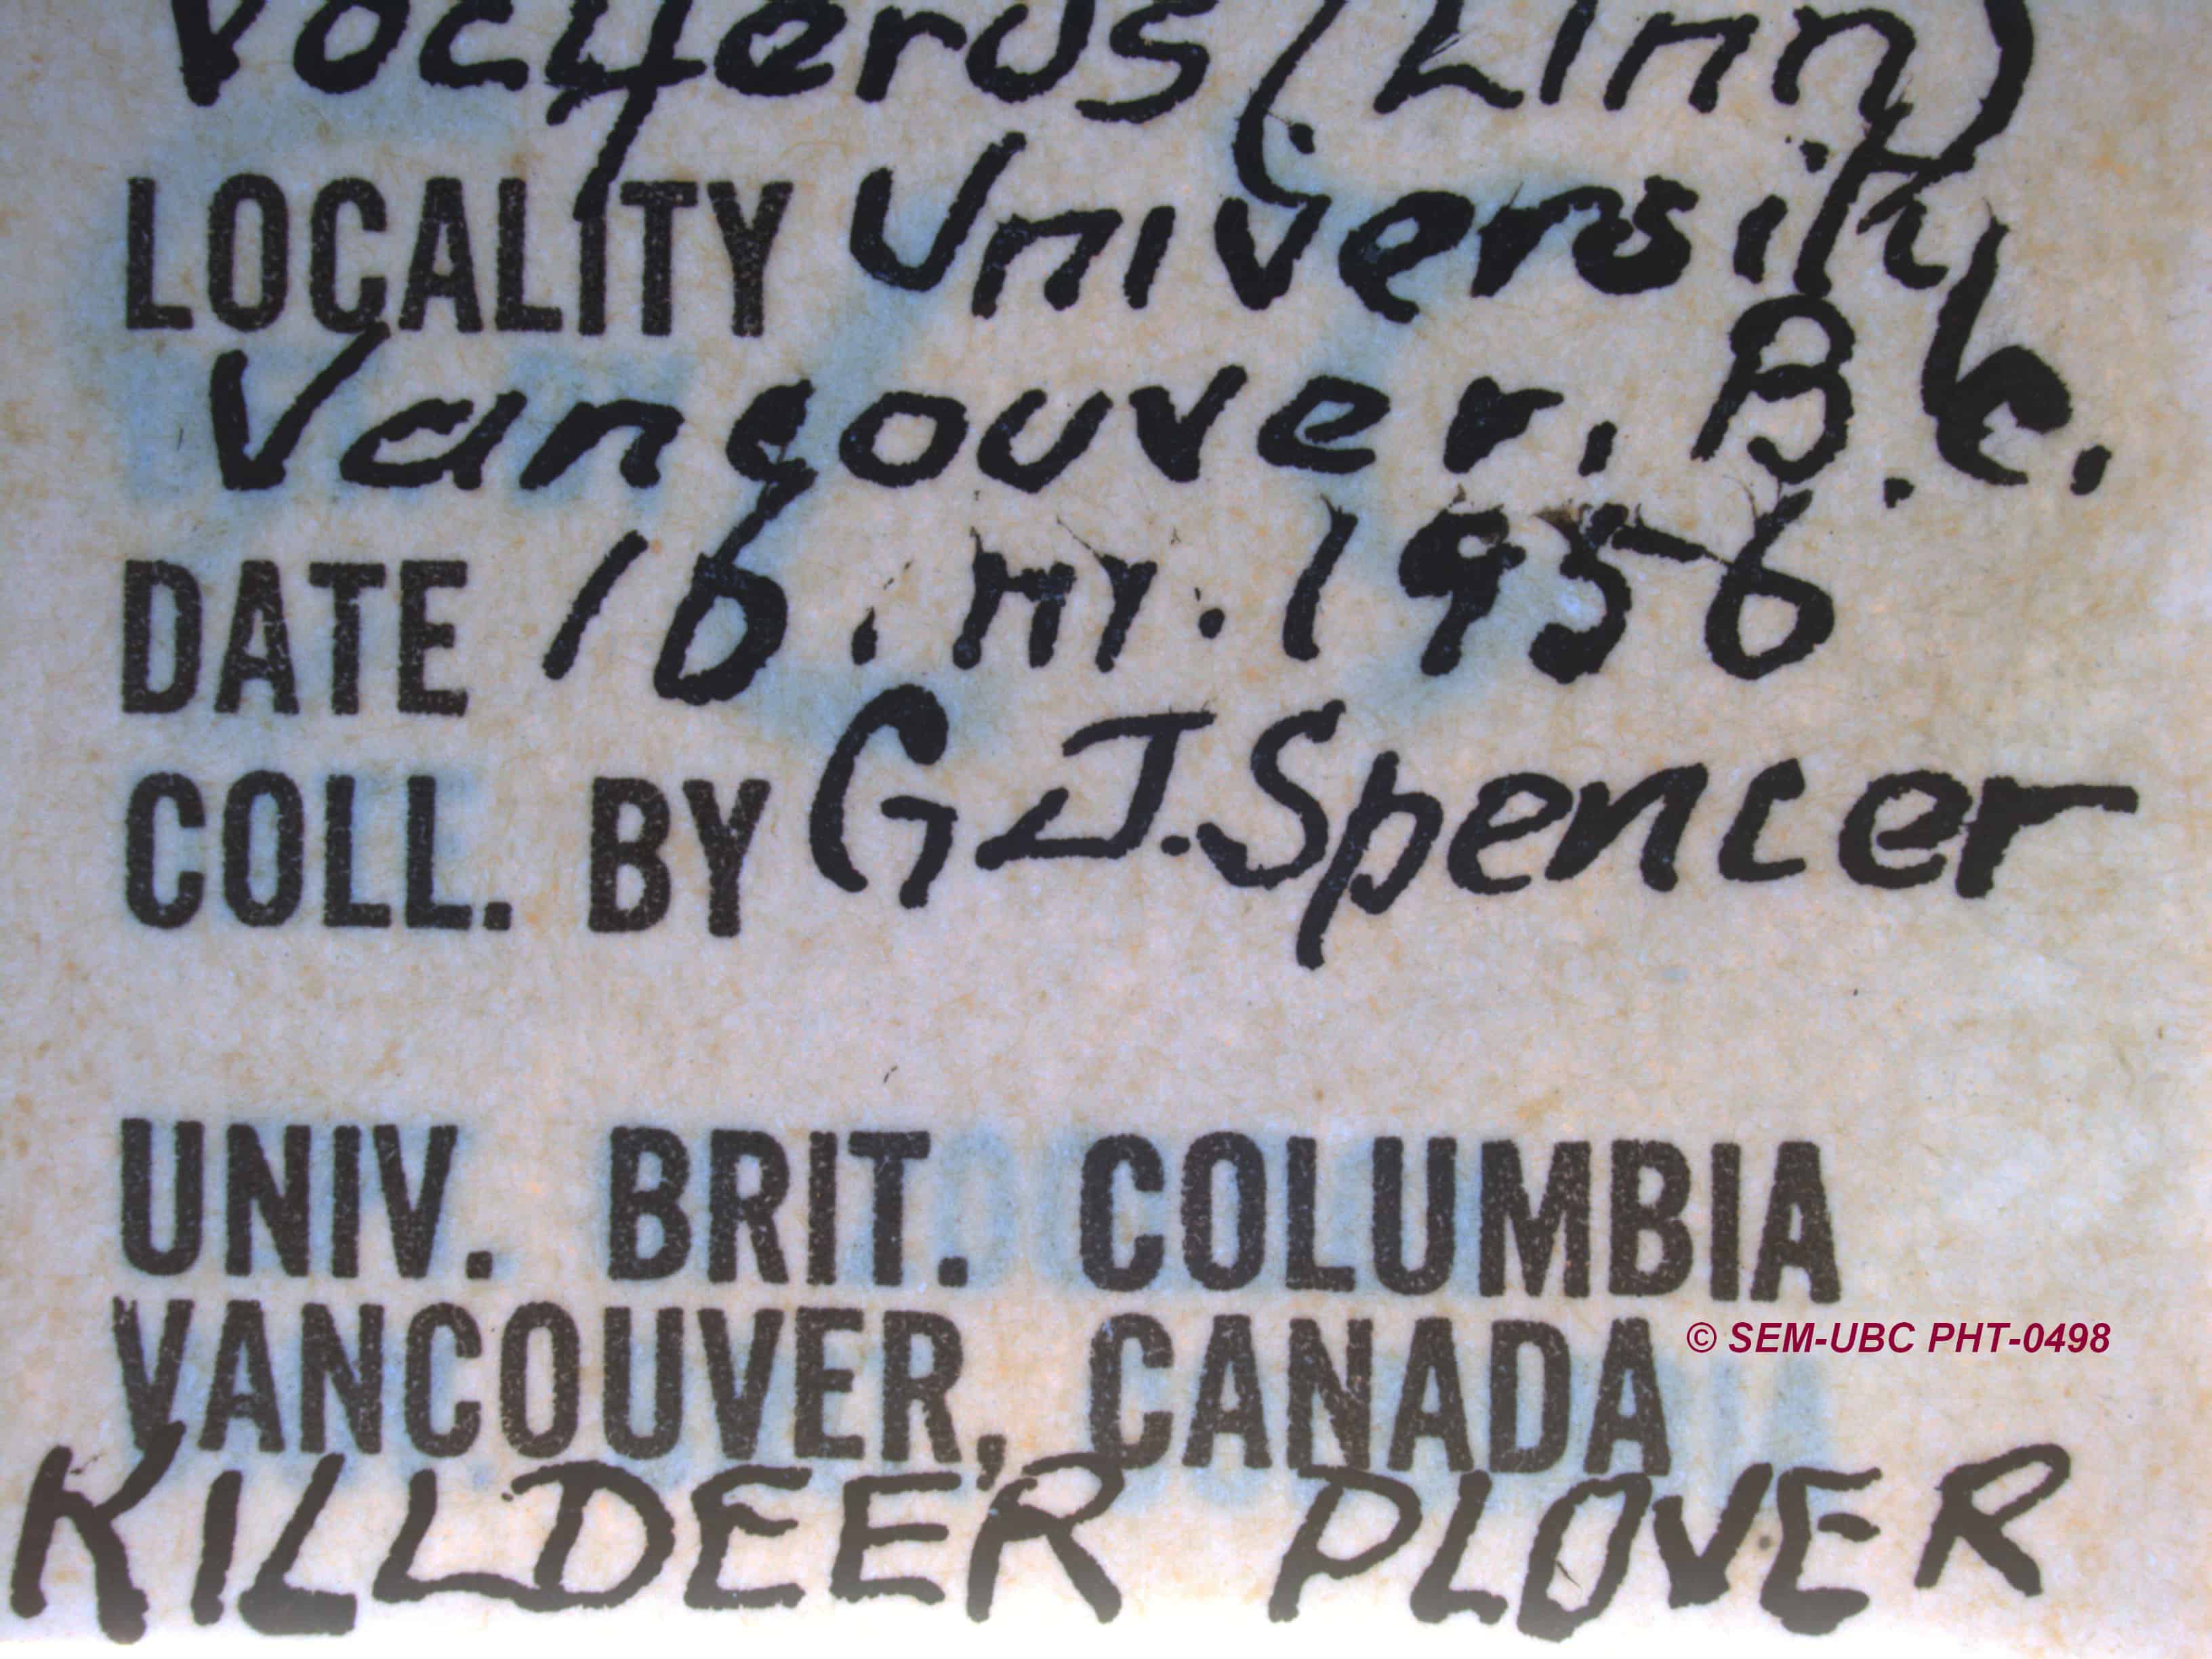 vociferus (Linn)
LOCALITY University
Vancouver, B.C.
DATE 16.III.1956
COLL. BY G J. Spencer
UNIV. BRIT. COLUMBIA
VANCOUVER, CANADA
© SEM-UBC PHT-0498
KILLDEER PLOVER